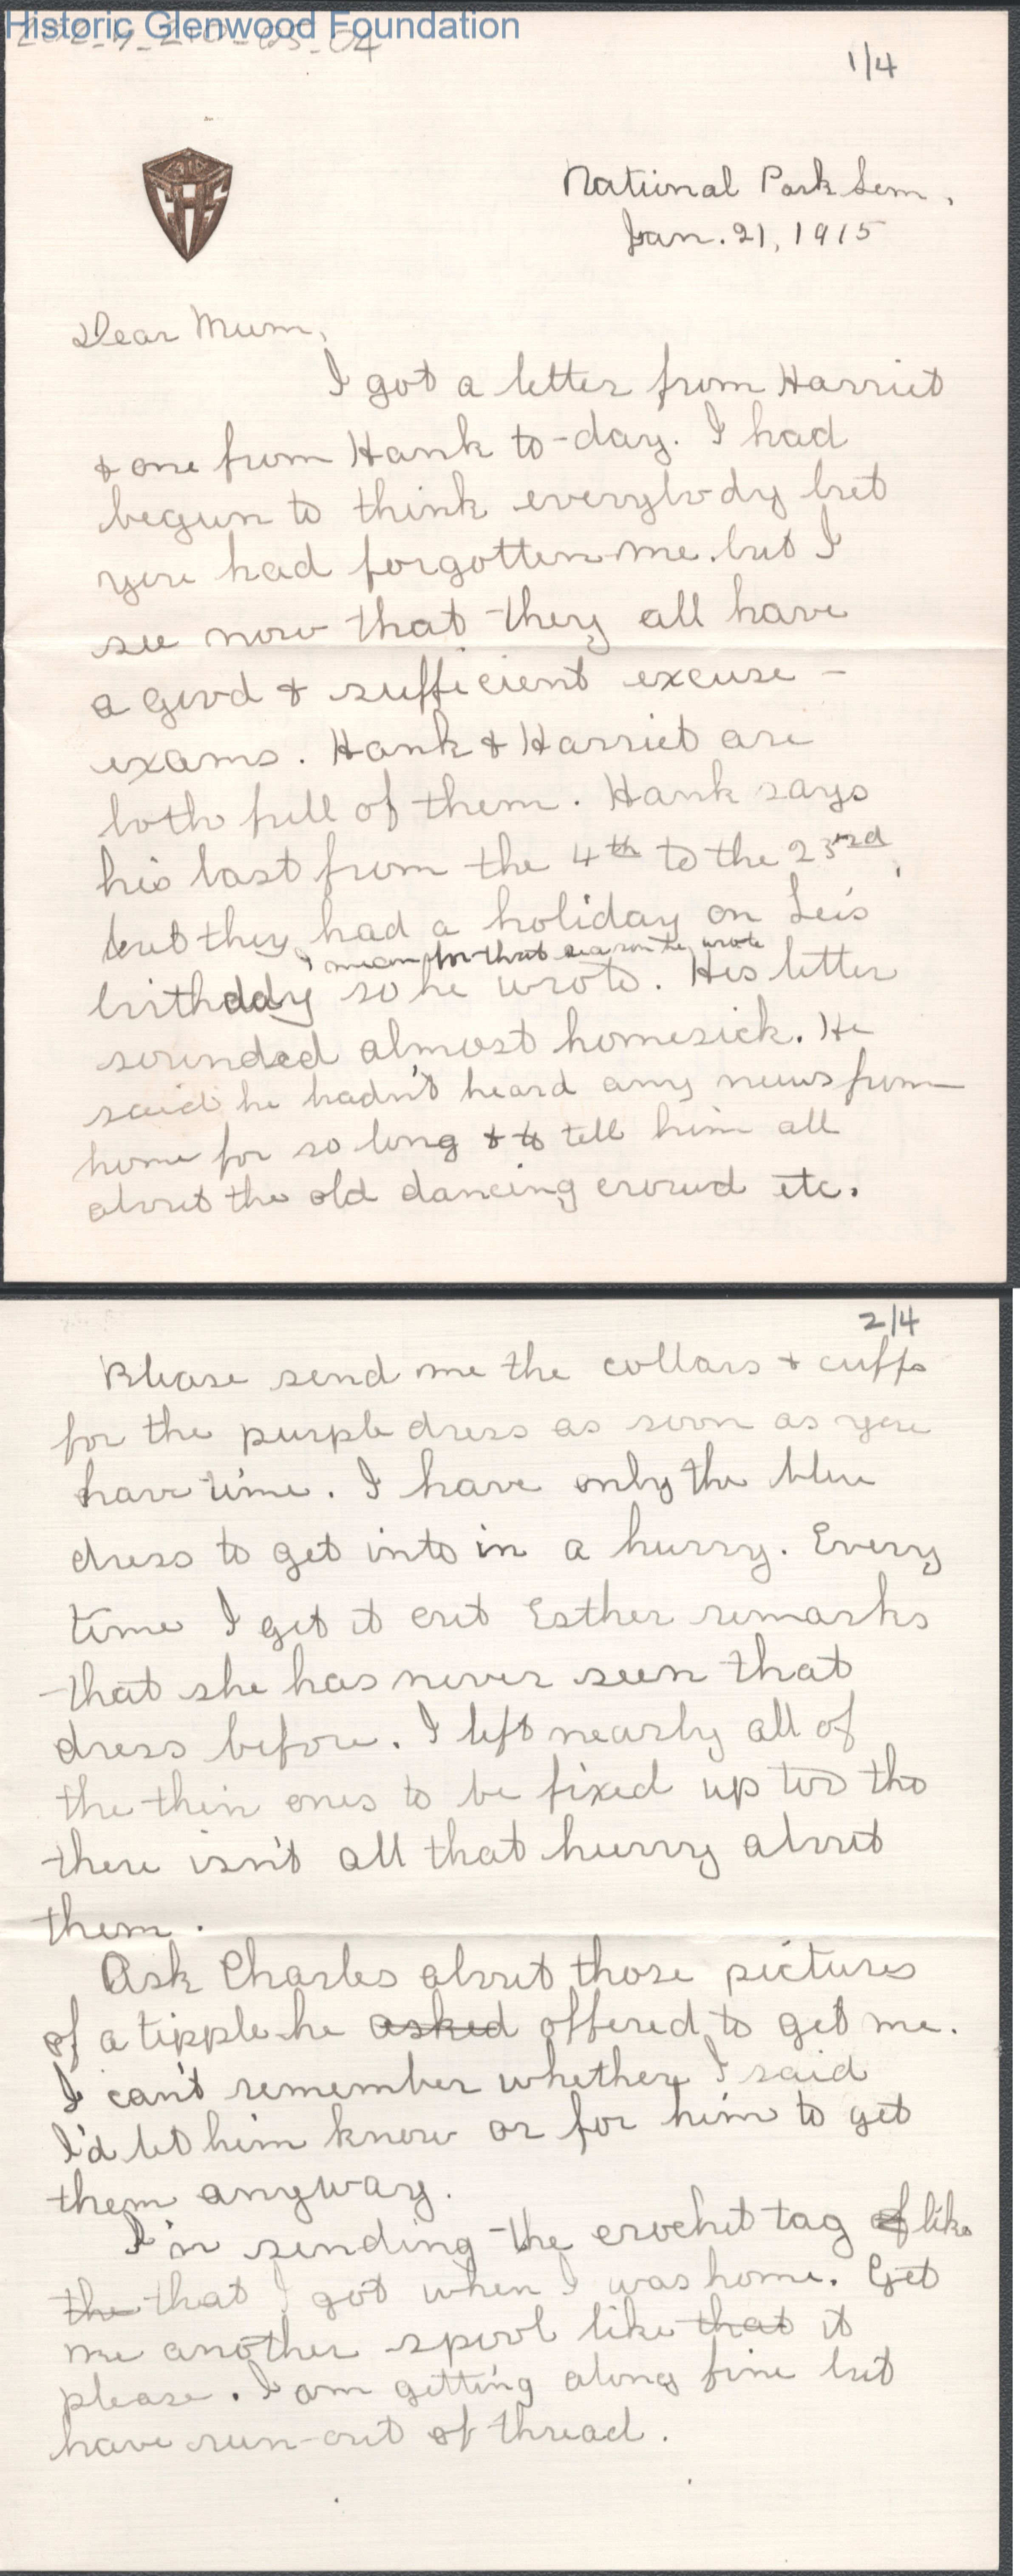 Historic Glenwood Foundation
1/4
National Park Sem.,
Jan. 21, 1915
Dear Mum,
I got a letter from Harriet
& one from Hank to-day. I had
begun to think everybody but
you had forgotten me but I
see now that they all have
a good & sufficient excuse –
exams. Hank & Harriet are
both full of them. Hank says
his last from the 4th to the 23rd,
but they had a holiday on Lee's
I mean for that reason he wrote
birthday so he wrote. His letter
sounded almost homesick. He
said he hadn't heard any news from
home for so long & to tell him all
about the old dancing crowd etc.
2/4
Please send me the collars & cuffs
for the purple dress as soon as you
have time. I have only the blue
dress to get into in a hurry. Every
time I get it out Esther remarks
that she has never seen that
dress before. I left nearly all of
the thin ones to be fixed up too tho
there isn't all that hurry about
them.
Ask Charles about those pictures
of a tipple he asked offered to get me.
I can't remember whether I said
I'd let him know or for him to get
them anyway.
I'm sending the crochet tag of like
the that I got when I was home. Get
me another spool like that it
please. I am getting along fine but
have run-out of thread.